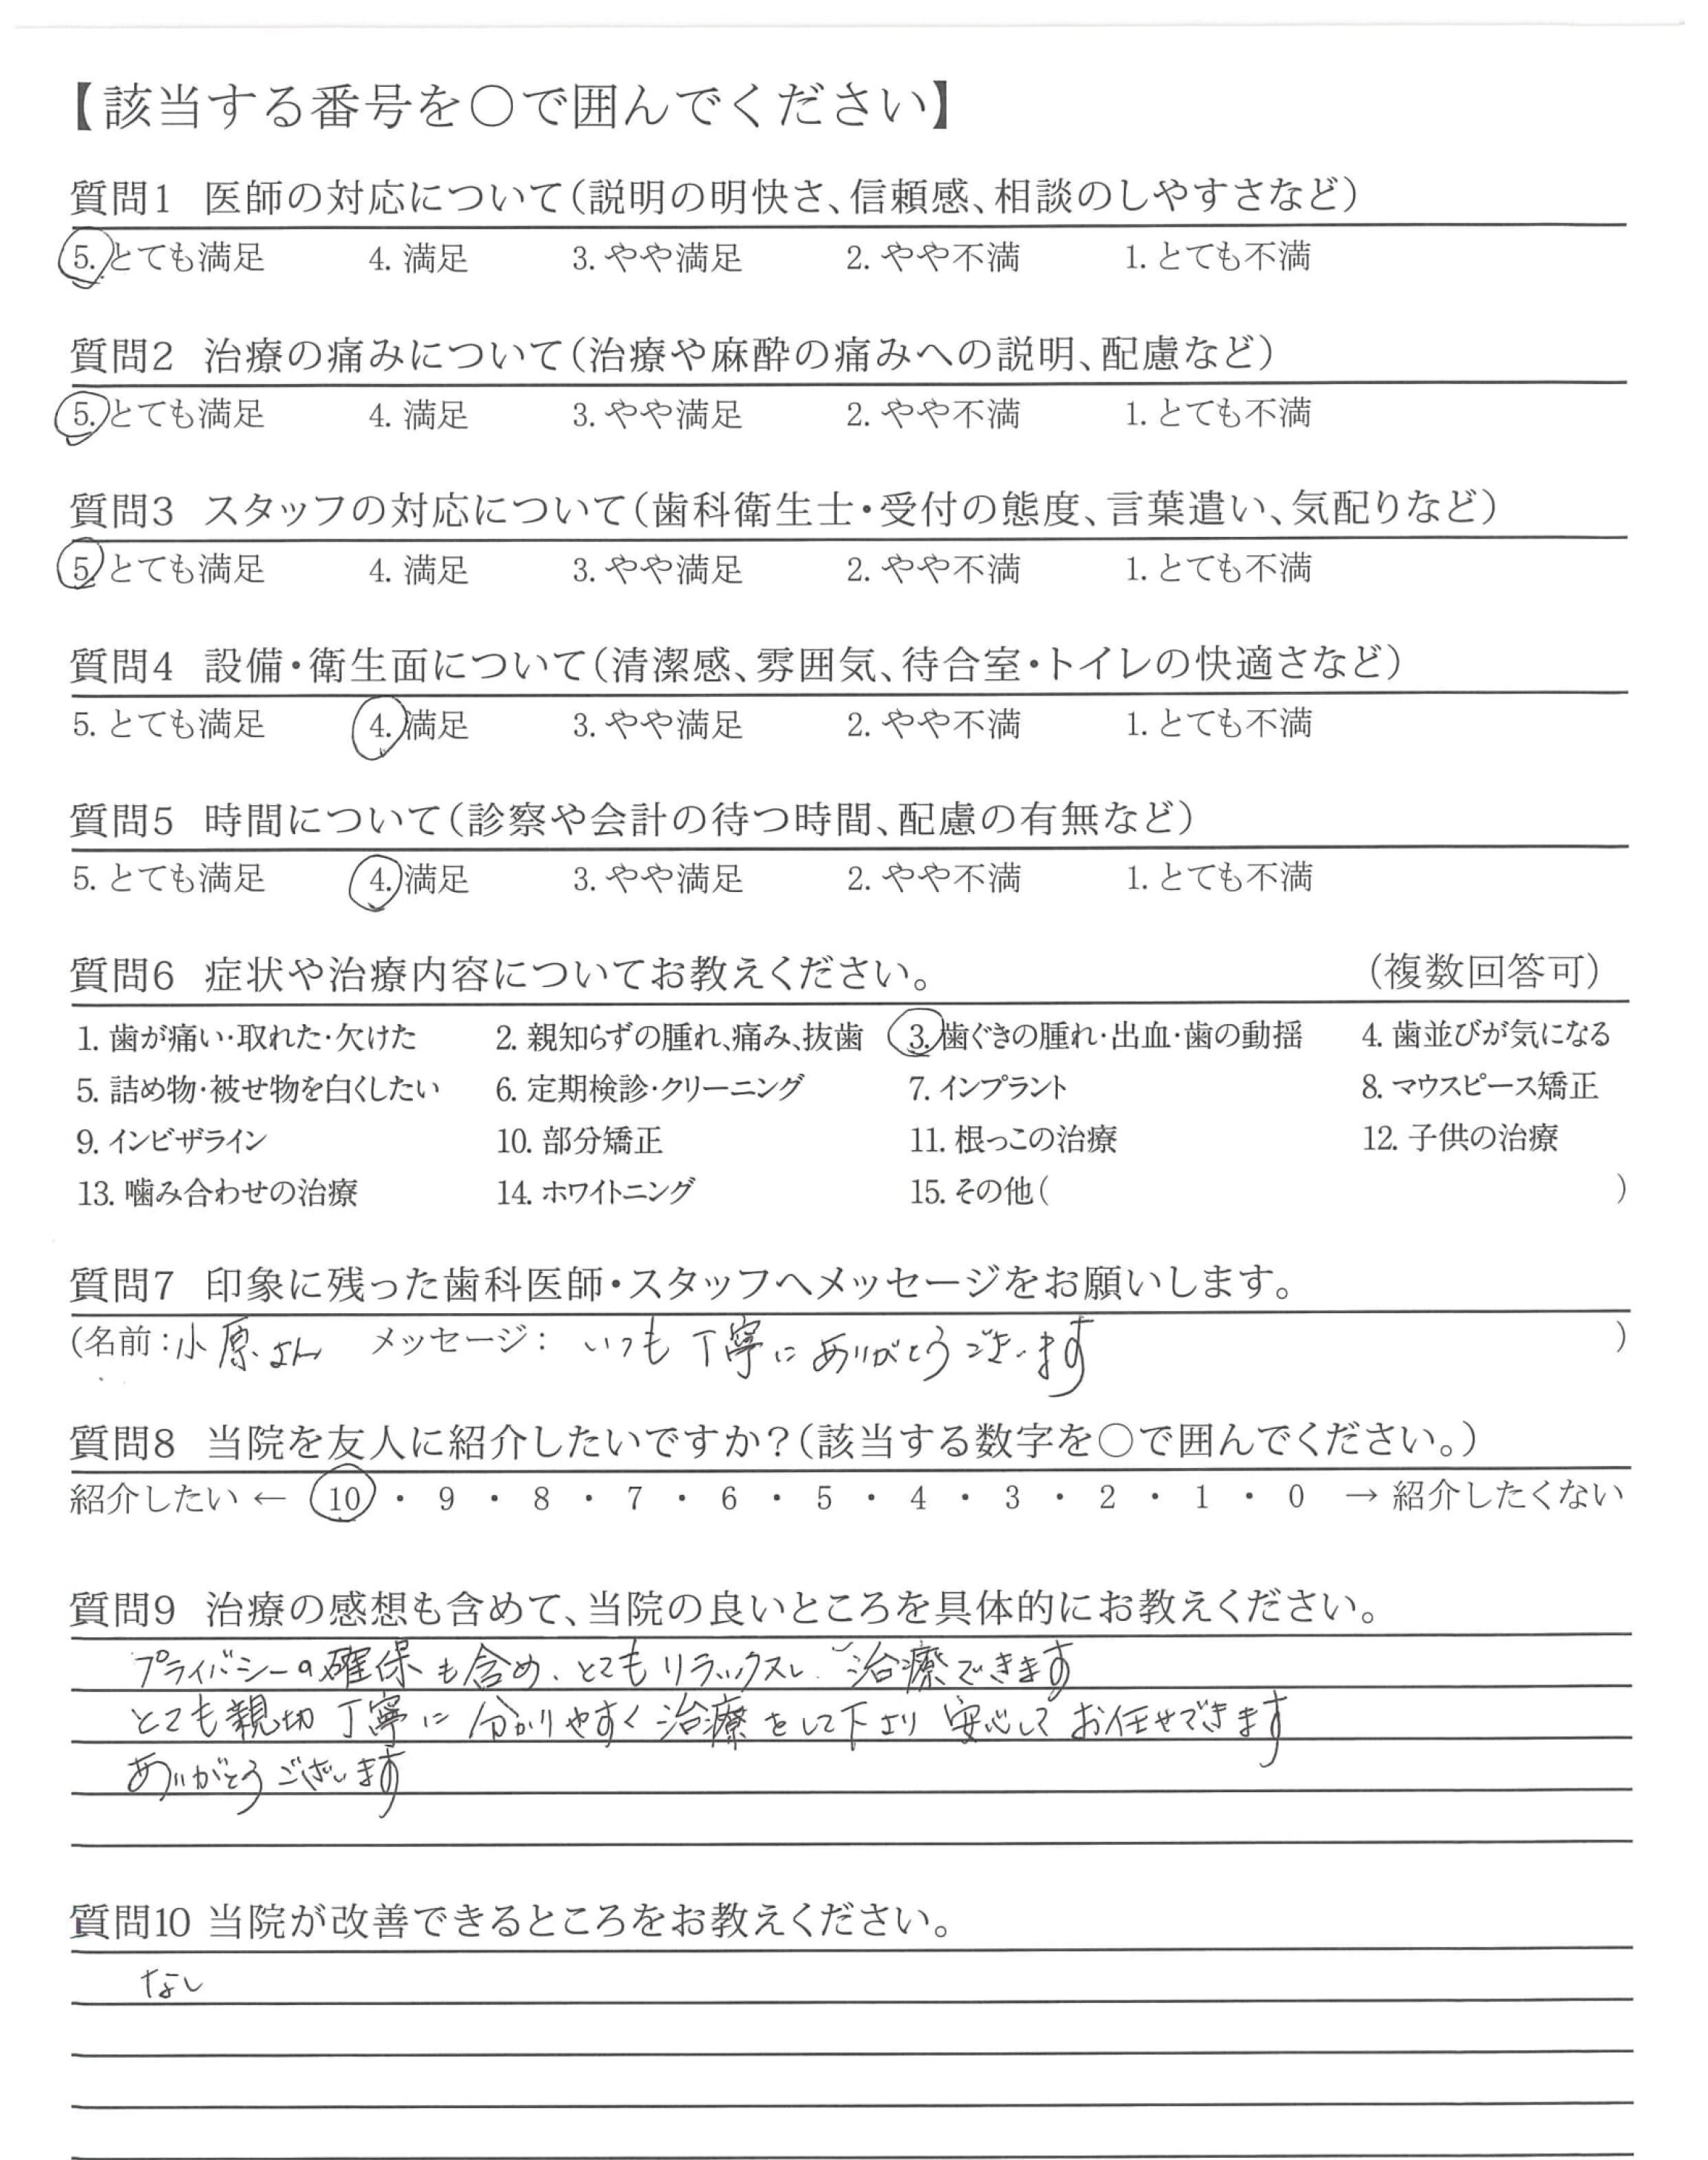 【該当する番号を○で囲んでください】
質問1 医師の対応について(説明の明快さ、信頼感、相談のしやすさなど)
5. とても満足 4. 満足 3. やや満足 2. やや不満 1. とても不満
質問2 治療の痛みについて(治療や麻酔の痛みへの説明、配慮など)
5. とても満足 4. 満足 3. やや満足 2. やや不満 1. とても不満
質問3 スタッフの対応について(歯科衛生士・受付の態度、言葉遣い、気配りなど)
5. とても満足 4. 満足 3. やや満足 2. やや不満 1. とても不満
質問4 設備・衛生面について(清潔感、雰囲気、待合室・トイレの快適さなど)
5. とても満足 4. 満足 3. やや満足 2. やや不満 1. とても不満
質問5 時間について(診察や会計の待つ時間、配慮の有無など)
5. とても満足 4. 満足 3. やや満足 2. やや不満 1. とても不満
質問6 症状や治療内容についてお教えください。 (複数回答可)
1. 歯が痛い・取れた・欠けた 2. 親知らずの腫れ、痛み、抜歯 3. 歯ぐきの腫れ・出血・歯の動揺 4. 歯並びが気になる
5. 詰め物・被せ物を白くしたい 6. 定期検診・クリーニング 7. インプラント 8. マウスピース矯正
9. インビザライン 10. 部分矯正 11. 根っこの治療 12. 子供の治療
13. 噛み合わせの治療 14. ホワイトニング 15. その他( )
質問7 印象に残った歯科医師・スタッフへメッセージをお願いします。
(名前：小原さん メッセージ： いつも丁寧にありがとうございます )
質問8 当院を友人に紹介したいですか？(該当する数字を○で囲んでください。)
紹介したい ← 10 ・ 9 ・ 8 ・ 7 ・ 6 ・ 5 ・ 4 ・ 3 ・ 2 ・ 1 ・ 0 → 紹介したくない
質問9 治療の感想も含めて、当院の良いところを具体的にお教えください。
プライバシーの確保も含め、とてもリラックスし、治療できます
とても親切丁寧に分かりやすく治療をして下さり安心してお任せできます
ありがとうございます
質問10 当院が改善できるところをお教えください。
なし